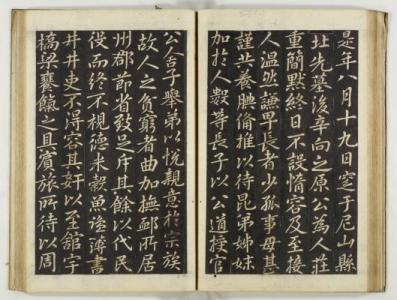 是年八月十九日窆于尼山縣
北先墓後辛向之原公為人莊
重簡黙終日不設惰容及至接
人温然謙卑長者少孤事母甚
謹共養備推以待昆弟姊妹
加於人數等長子以公道授官
公舍子舉弟以悅親意於宗族
故人之貧窮者曲加撫䘏所居
州郡節省致之斥其餘以代民
役而終不德米穀魚塩薄書
井井吏不得容其奸以至舘宇
橋梁饔餼之具賓旅所待以周